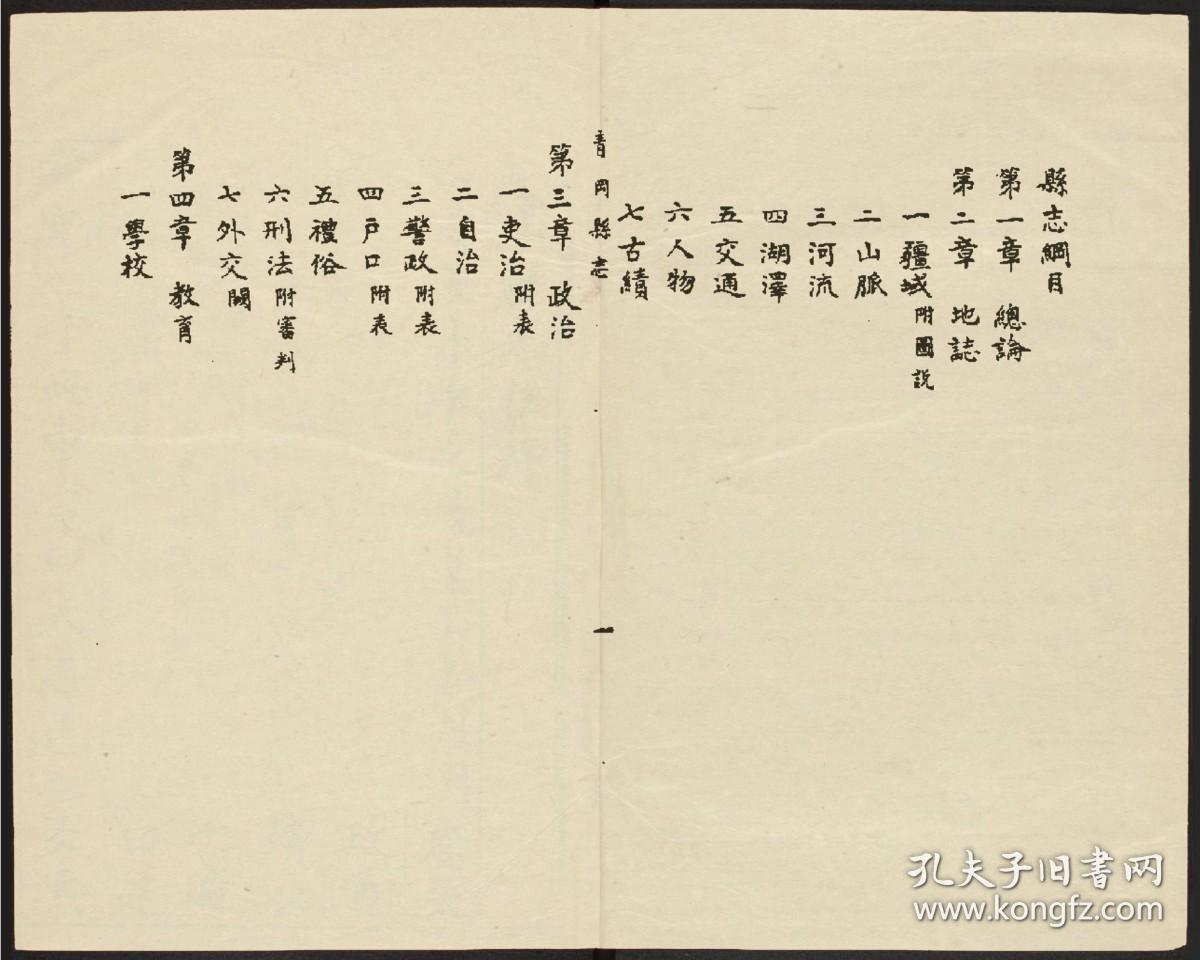 縣志綱目
第一章 總論
第二章 地誌
一疆域附圖說
二山脈
三河流
四湖澤
五交通
六人物
七古績
青岡縣志 一
第三章 政治
一吏治附表
二自治
三警政附表
四戶口附表
五禮俗
六刑法附審判
七外交闕
第四章 教育
一學校
孔夫子旧书网
www.kongfz.com